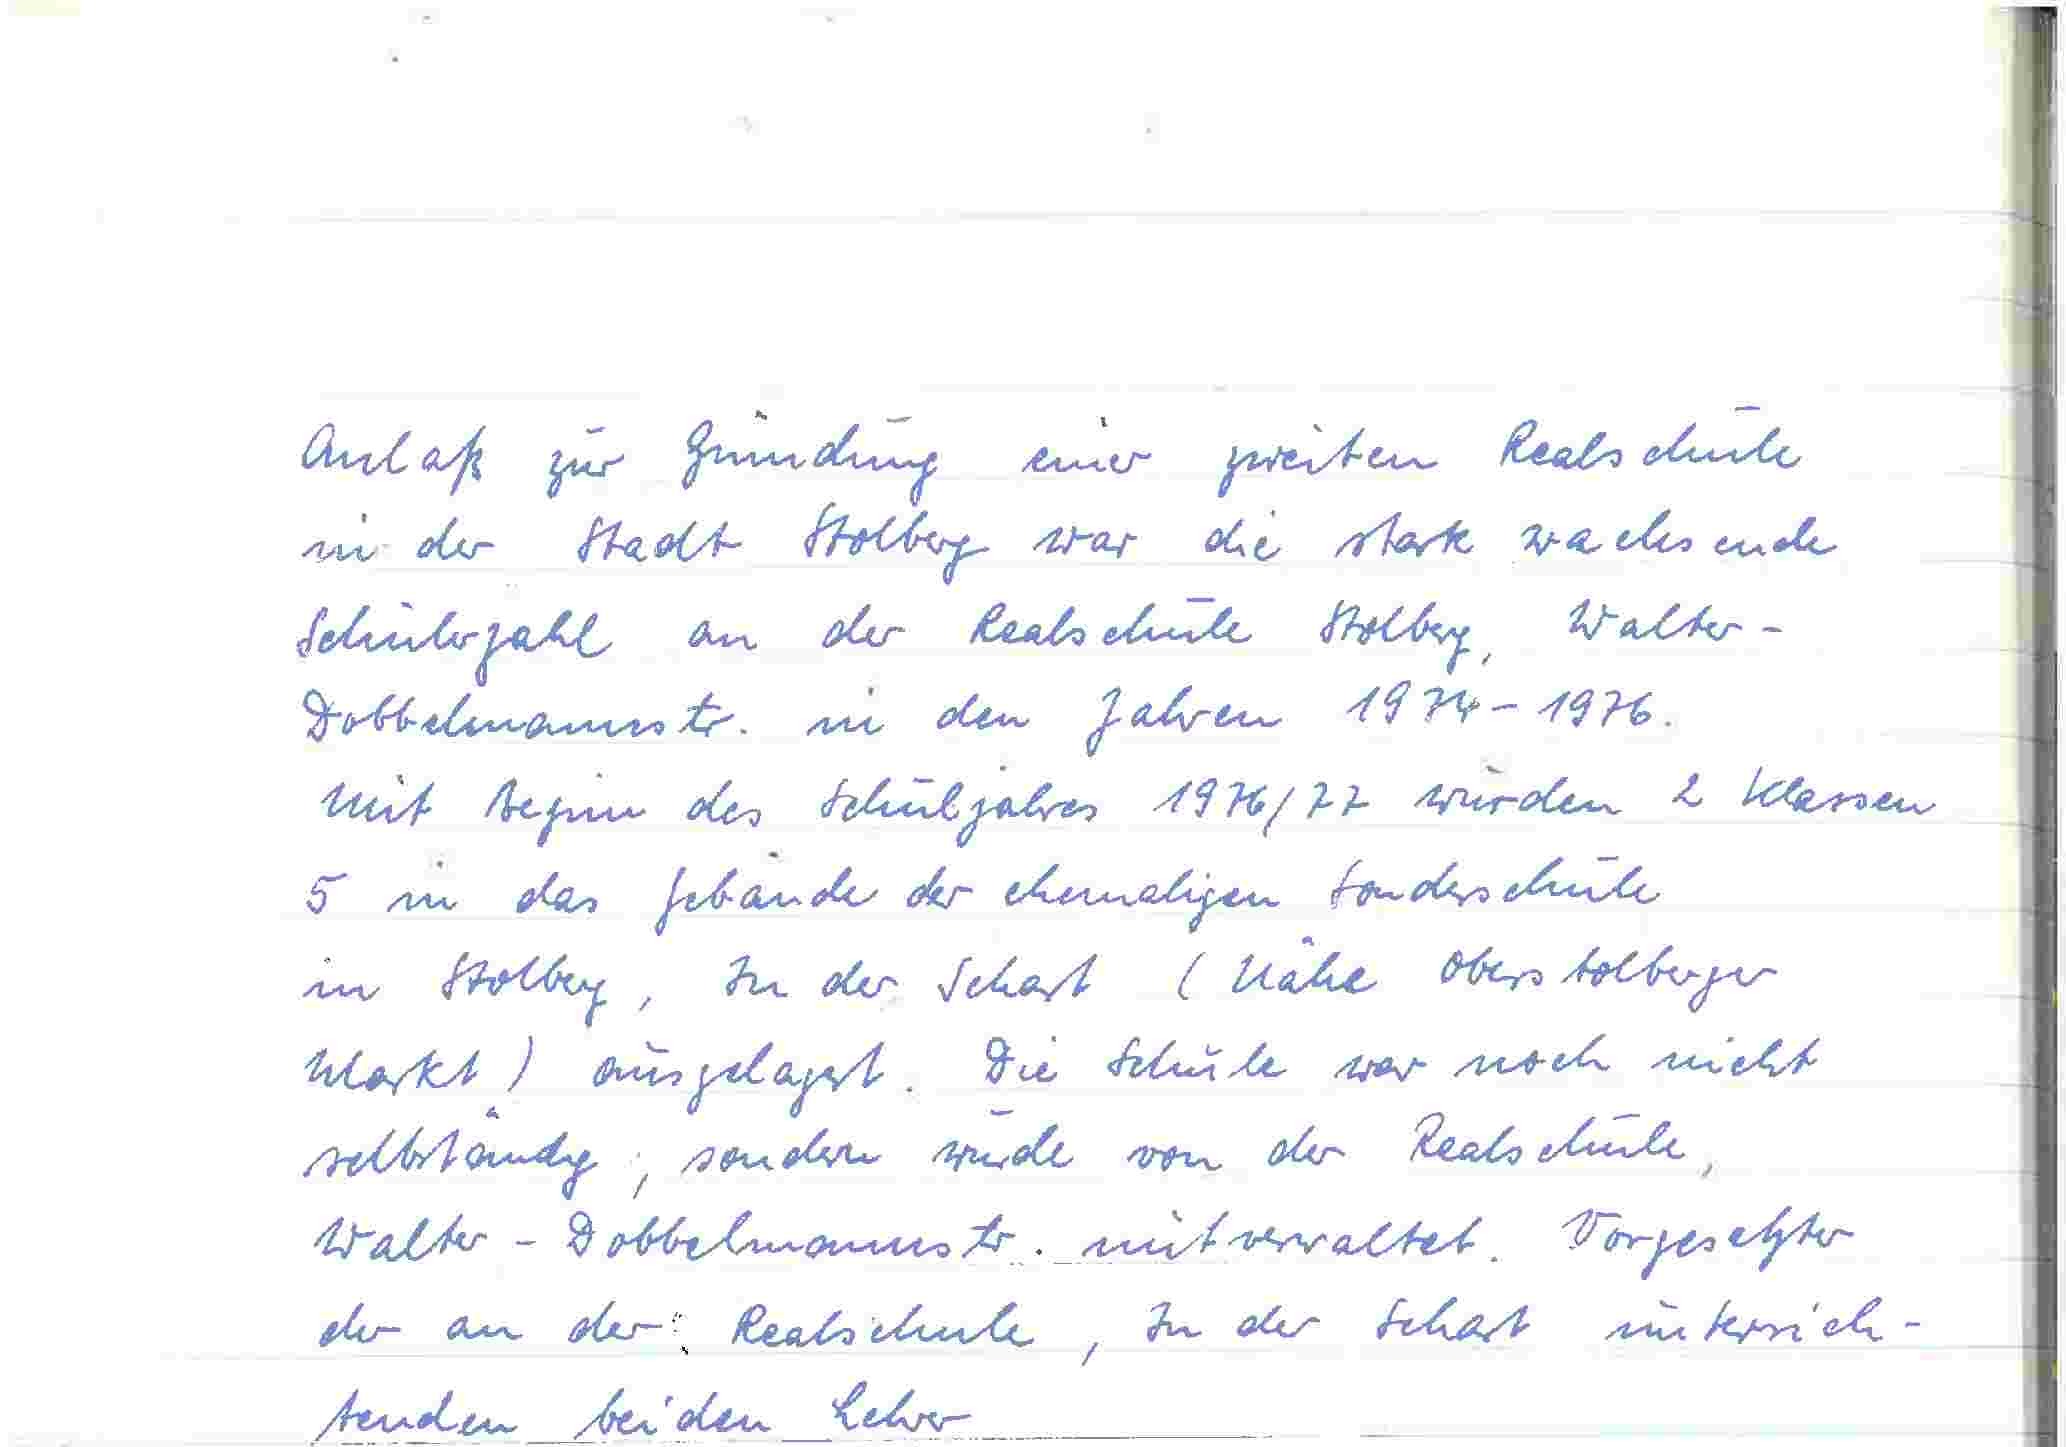 Anlaß zur Gründung einer zweiten Realschule
in der Stadt Stolberg war die stark wachsende
Schülerzahl an der Realschule Stolberg, Walter-
Dobbelmannstr. in den Jahren 1974-1976.
Mit Beginn des Schuljahres 1976/77 wurden 2 Klassen
5 in das Gebäude der ehemaligen Sonderschule
in Stolberg, In der Schart (Nähe Oberstolberger
Markt) ausgelagert. Die Schule war noch nicht
selbständig, sondern wurde von der Realschule,
Walter-Dobbelmannstr. mitverwaltet. Vorgesetzter
der an der Realschule, In der Schart unterrich-
tenden beiden Lehrer